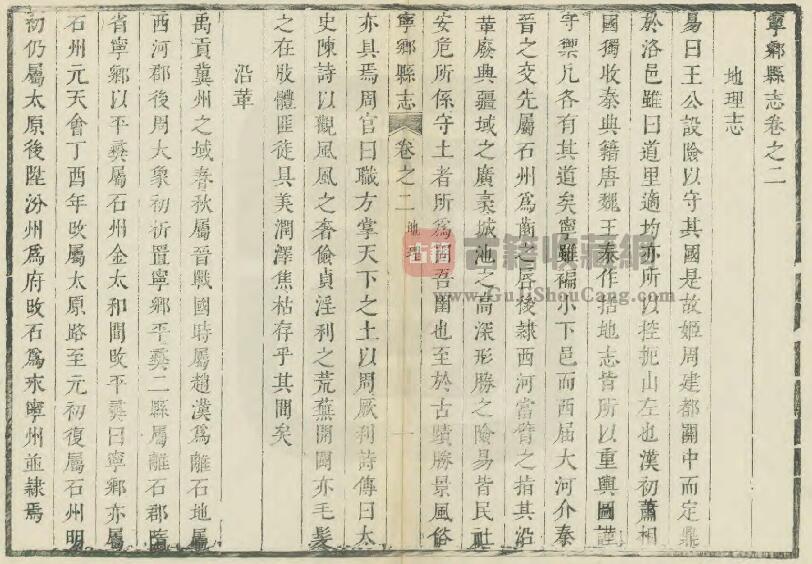 寧鄉縣志卷之二
地理志
易曰王公設險以守其國是故姬周建都關中而定鼎
於洛邑雖曰道里適均亦所以控扼山左也漢初蕭相
國獨收秦典籍唐魏王泰作括地志皆所以重輿圖謹
守禦凡各有其道矣寧雖褊小下邑而西屆大河介秦
晉之交先屬石州為藺之唇後隷西河當臂之指其沿
革廢興疆域之廣袤城池之高深形勝之險易皆民社
安危所係守土者所為固吾圉也至於古蹟勝景風俗
寧鄉縣志 卷之二 地理 一
亦具焉周官曰職方掌天下之土以周厥利詩傳曰太
史陳詩以觀風風之奢儉貞淫利之荒蕪開闢亦毛髮
之在肢體匪徒具美潤澤焦枯存乎其間矣
沿革
禹貢冀州之域春秋屬晉戰國時屬趙漢為離石地屬
西河郡後周大象初析置寧鄉平彛二縣屬離石郡隋
省寧鄉以平彛屬石州金太和間改平彛曰寧鄉亦屬
石州元天會丁酉年改屬太原路至元初復屬石州明
初仍屬太原後陞汾州為府改石為永寧州並隷焉
古籍
古籍收藏網
www.GuJiShouCang.com